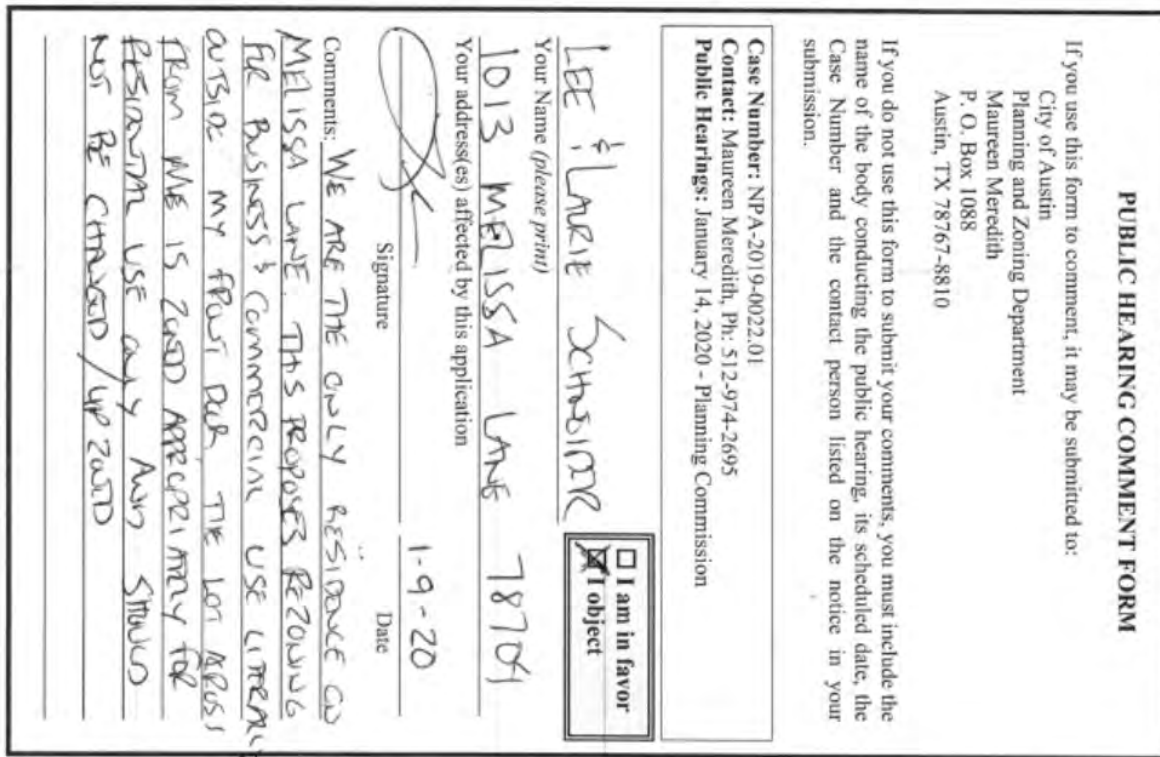 PUBLIC HEARING COMMENT FORM
If you use this form to comment, it may be submitted to:
City of Austin
Planning and Zoning Department
Maureen Meredith
P. O. Box 1088
Austin, TX 78767-8810
If you do not use this form to submit your comments, you must include the
name of the body conducting the public hearing, its scheduled date, the
Case Number and the contact person listed on the notice in your
submission.
Case Number: NPA-2019-0022.01
Contact: Maureen Meredith, Ph: 512-974-2695
Public Hearings: January 14, 2020 - Planning Commission
☐ I am in favor
☒ I object
LEE & LAURIE SCHNEIDER
Your Name (please print)
1013 MELISSA LANE 78704
Your address(es) affected by this application
1-9-20
Signature Date
Comments: WE ARE THE ONLY RESIDENCE ON
MELISSA LANE. THIS PROPOSES REZONING
FOR BUSINESS & COMMERCIAL USE LITERALLY
OUTSIDE MY FRONT DOOR. THE LOT ACROSS
FROM ME IS ZONED APPROPRIATLY FOR
RESIDENTAL USE ONLY AND SHOULD
NOT BE CHANGED / UP ZONED